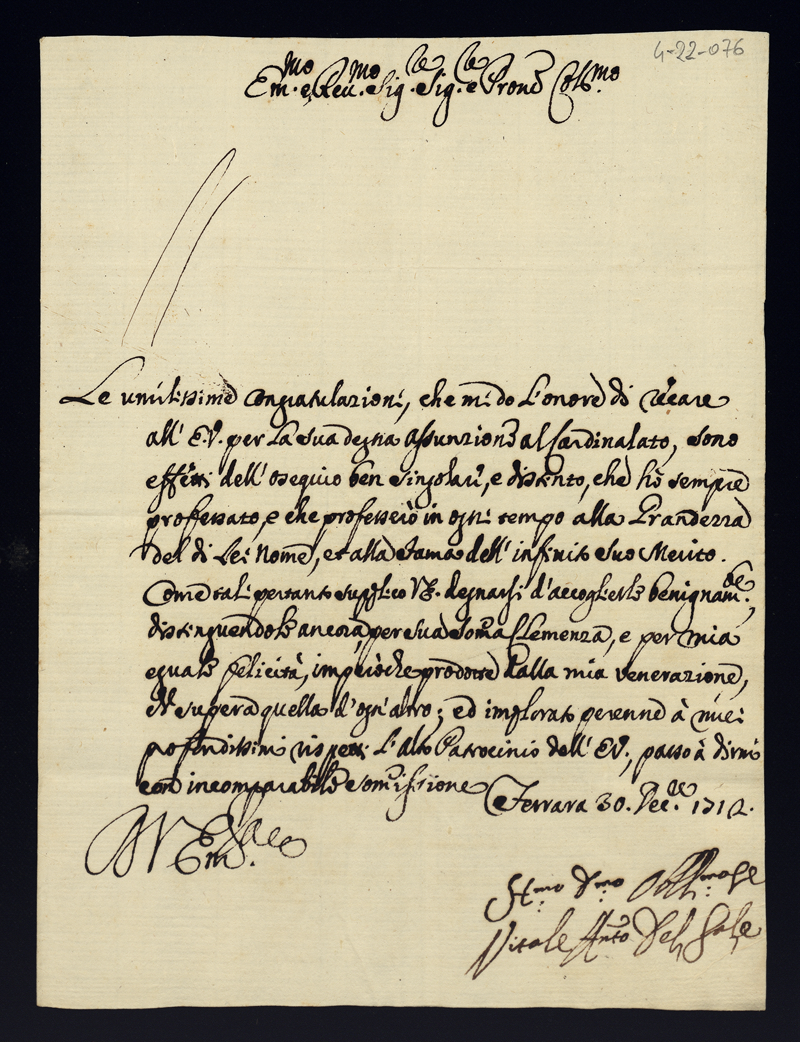 4-22-076
Em.mo e Reu.mo Sig.re Sig.re e Prone Coll.mo
Le umilissime congratulazioni, che mi do l'onore di recare
all' E.V. per la sua degna assunzione al Cardinalato, sono
effetti dell' ossequio ben singolare, e distinto, che hò sempre
professato, e che professerò in ogni tempo alla Grandezza
del di Lei Nome, et alla fama dell' infinito suo Merito.
Come tali pertanto supplico V.E. degnarsi d'accoglierle benignam.te,
distinguendole ancora, per sua somma Clemenza, e per mia
eguale felicità, imperòche prodotte dalla mia venerazione,
che supera quella d'ogn' altro; ed implorato perenne à miei
profondissimi rispetti l'alto Patrocinio dell' E.V., passo à dirmi
con incomparabile somissione
Ferrara 30. Dec.re 1712.
D V Em.
Vitale Ant.o Del Sale